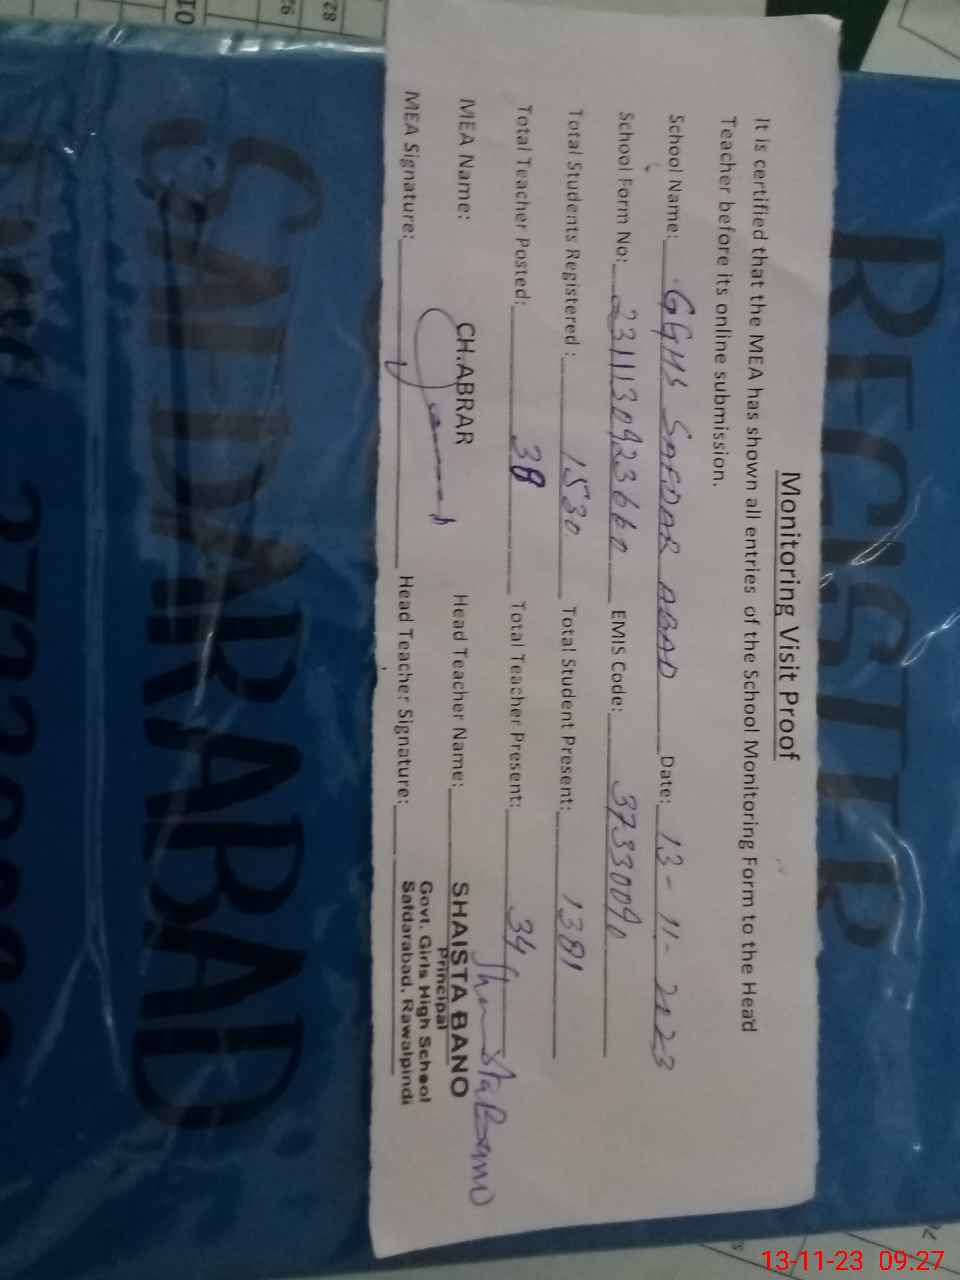 REGISTER
Monitoring Visit Proof
It is certified that the MEA has shown all entries of the School Monitoring Form to the Head
Teacher before its online submission.
School Name: GGHS SAFDAR ABAD Date: 13-11-2023
School Form No: EMIS Code: 37330090
Total Students Registered : 1530 Total Student Present: 1381
Total Teacher Posted: 38 Total Teacher Present: 34
MEA Name: CH.ABRAR Head Teacher Name: SHAISTA BANO
Principal
Govt. Girls High School
Safdarabad, Rawalpindi
MEA Signature: Head Teacher Signature:
SAFDARABAD
13-11-23 09.27